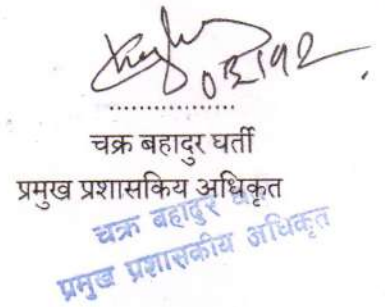 चक्र बहादुर घर्ती
प्रमुख प्रशासकिय अधिकृत
चक्र बहादुर
प्रमुख प्रशासकीय अधिकृत